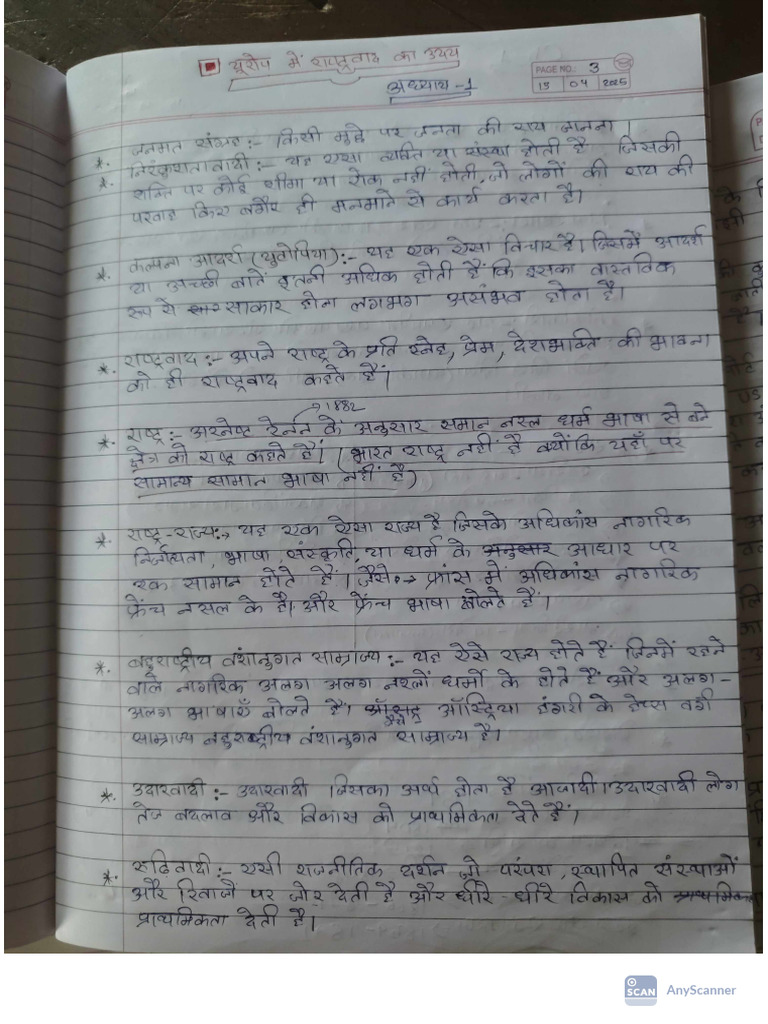 यूरोप में राष्ट्रवाद का उदय
अध्याय -1
PAGE NO.: 3
19 04 2025
*. जनमत संग्रह :- किसी मुद्दे पर जनता की राय जानना।
*. निरंकुशतावादी :- यह ऐसा व्यक्ति या संस्था होती है जिसकी
शक्ति पर कोई सीमा या रोक नहीं होती, जो लोगों की राय की
परवाह किए बगैर ही मनमाते से कार्य करता है।
*. कल्पना आदर्श (युटोपिया) :- यह एक ऐसा विचार है। जिसमें आदर्श
या अच्छी बातें इतनी अधिक होती हैं कि इसका वास्तविक
रूप से साकार होना लगभग असंभव होता है।
*. राष्ट्रवाद :- अपने राष्ट्र के प्रति स्नेह, प्रेम, देशभक्ति की भावना
को ही राष्ट्रवाद कहते हैं।
→ 1882
*. राष्ट्र :- अरनेष्ट रेनन के अनुसार समान नस्ल धर्म भाषा से बने
क्षेत्र को राष्ट्र कहते हैं। (भारत राष्ट्र नहीं है क्योंकि यहाँ पर
सामान्य सामान भाषा नहीं है)
*. राष्ट्र-राज्य :→ यह एक ऐसा राज्य है जिसके अधिकांस नागरिक
भाषा, संस्कृति, या धर्म के अनुसार आधार पर
एक सामान होते हैं। जैसे :→ फ्रांस में अधिकांस नागरिक
फ्रेंच नसल के है। और फ्रेंच भाषा बोलते हैं।
*. बहुराष्ट्रीय वंशानुगत साम्राज्य :- यह ऐसे राज्य होते हैं जिनमें रहने
वाले नागरिक अलग अलग नस्लों धर्मो के होते हैं और अलग-
अलग भाषाएँ बोलते हैं। ऑस्ट्रिया हंगरी के हैप्स वर्ग
साम्राज्य बहुराष्ट्रीय वंशानुगत साम्राज्य है।
*. उदारवादी :- उदारवादी जिसका अर्थ होता है आजादी। उदारवादी लोग
तेज बदलाव और विकास को प्राथमिकता देते हैं।
*. रूढ़िवादी :- एसी राजनीतिक दर्शन जो परंपरा, स्थापित संस्थाओं
और रिवाजों पर जोर देती है और धीरे-धीरे विकास को प्राथमिकता
प्राथमिकता देती है।
SCAN AnyScanner